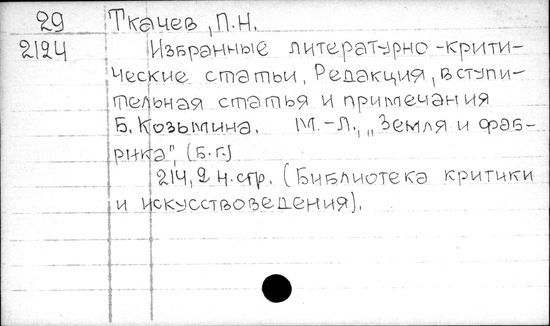 29 Ткачев, П.Н.
2124 Избранные литературно-крити-
ческие статьи. Редакция, вступи-
тельная статья и примечания
Б. Козьмина. М.-Л., „Земля и фаб-
рика", (б.г.)
214, 2 н.стр. (Библиотека критики
и искусствоведения).